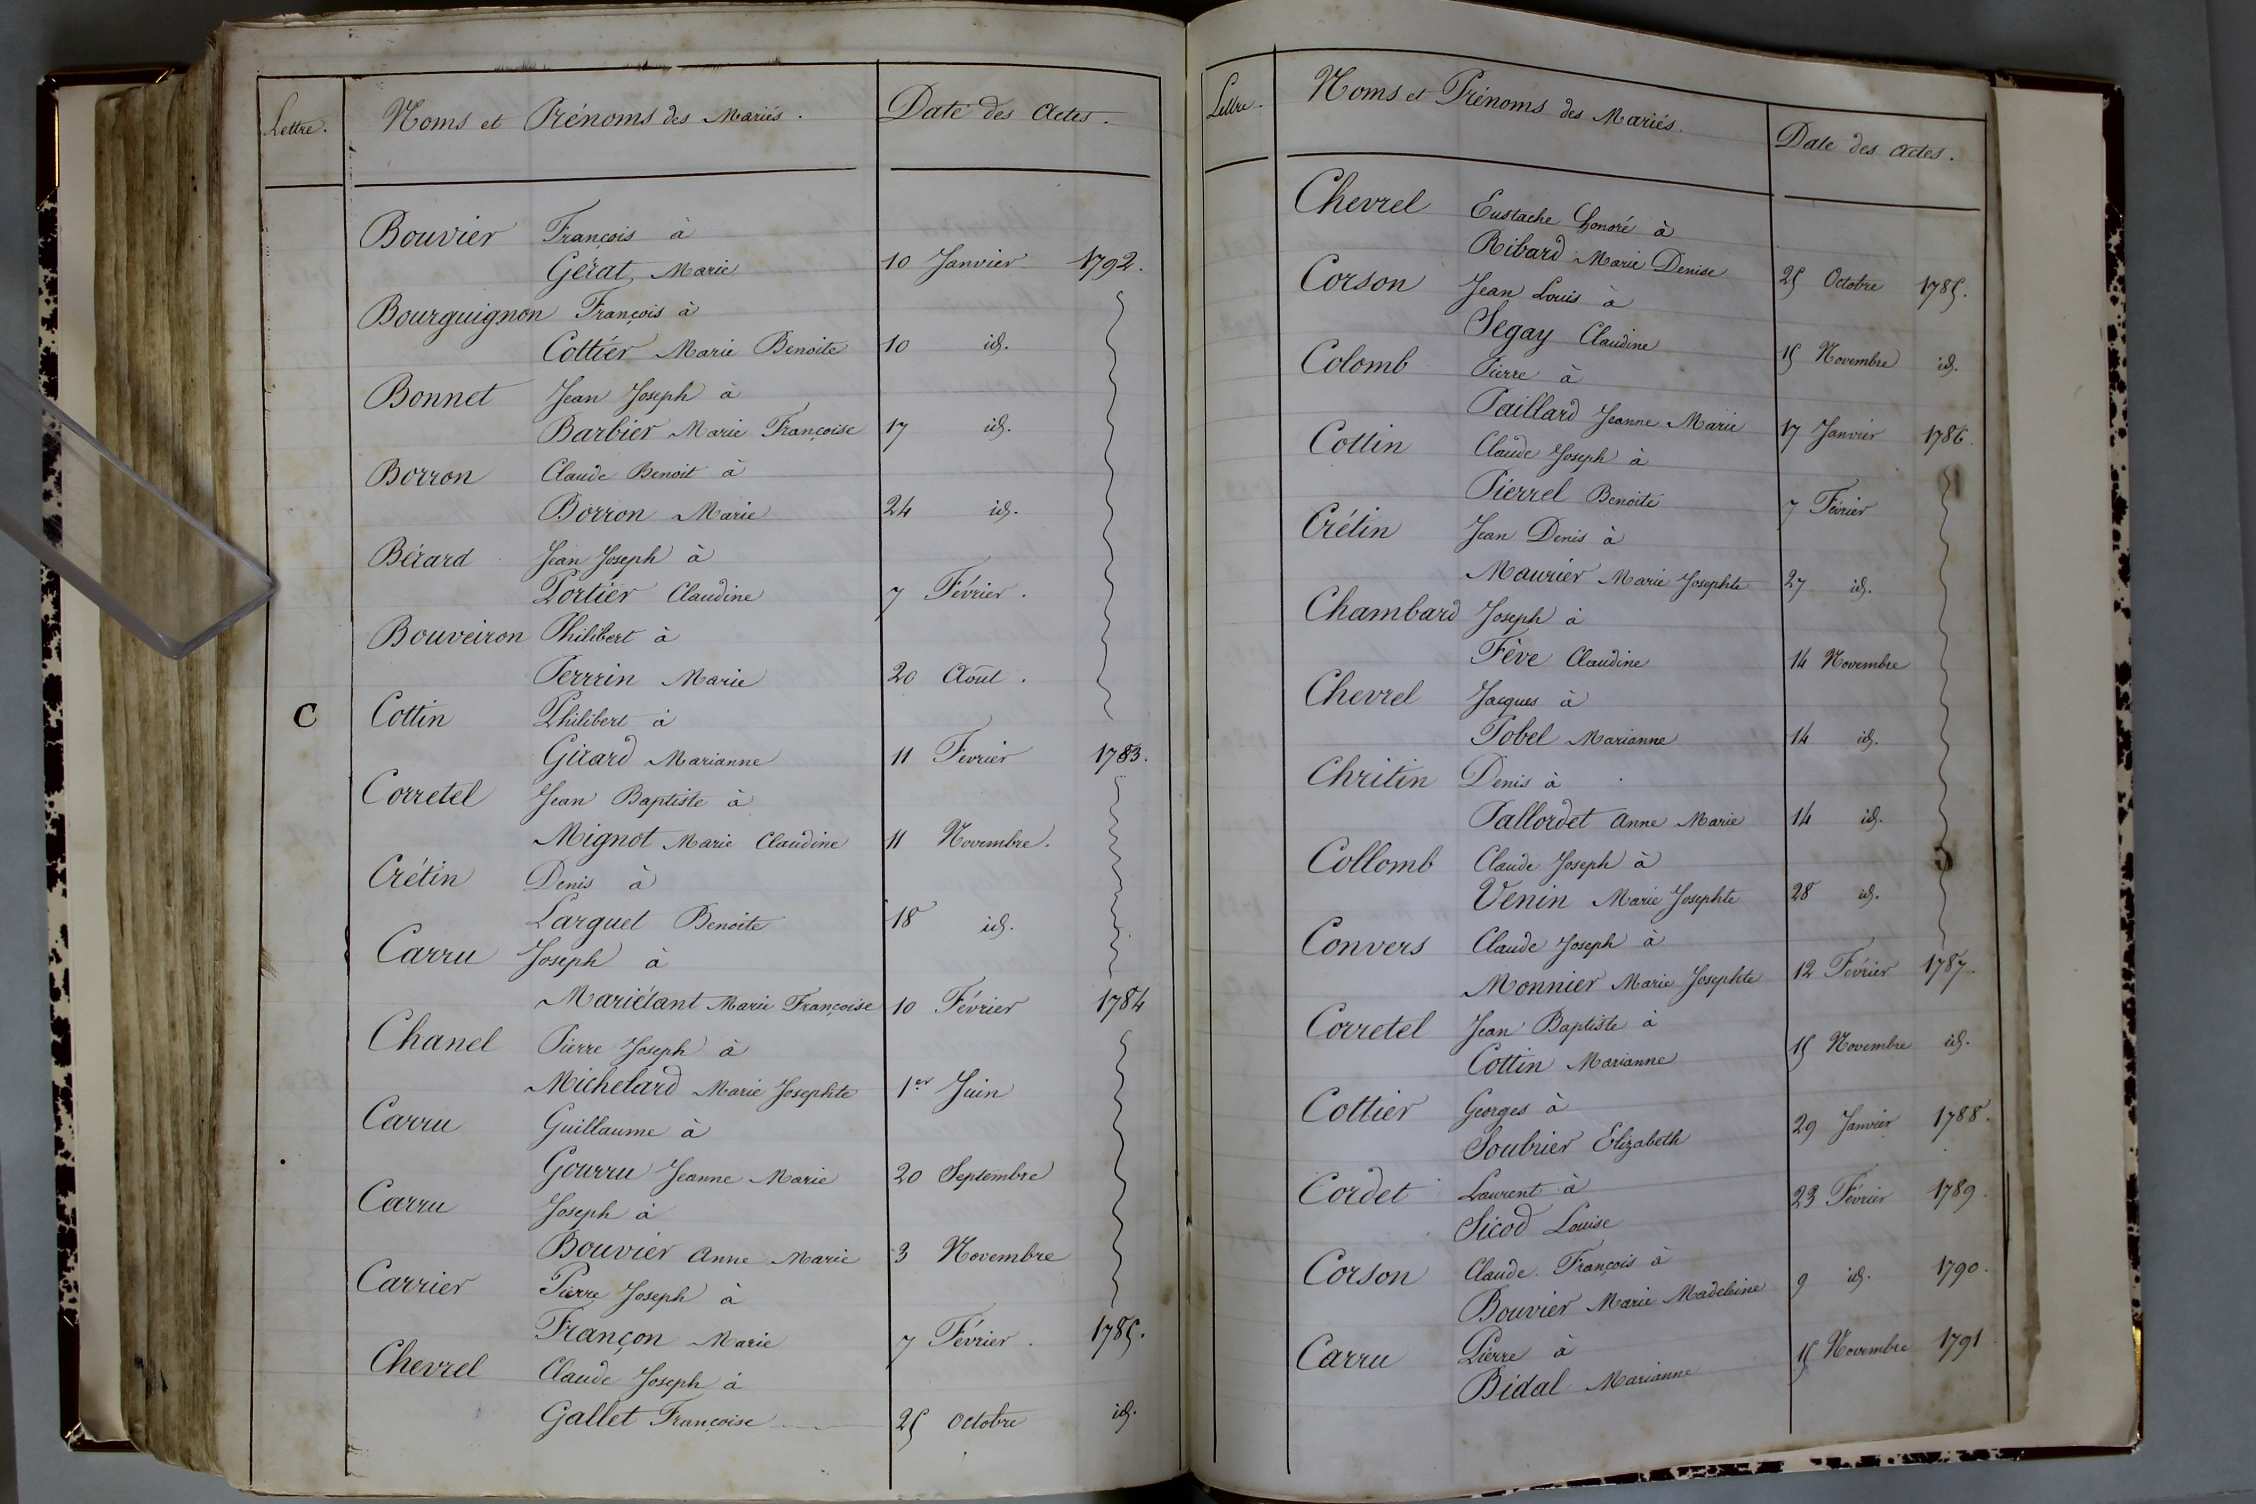 Lettre. Noms et Prénoms des Mariés. Date des Actes.
Bouvier François à
Gérat Marie 10 Janvier 1792.
Bourguignon François à
Cottier Marie Benoite 10 id.
Bonnet Jean Joseph à
Barbier Marie Françoise 17 id.
Borron Claude Benoit à
Borron Marie 24 id.
Bérard Jean Joseph à
Portier Claudine 7 Février.
Bouveiron Philibert à
Perrrin Marie 20 Août.
C Cottin Philibert à
Girard Marianne 11 Fevrier 1783.
Corretel Jean Baptiste à
Mignot Marie Claudine 11 Novembre.
Crétin Denis à
Larguet Benoite 18 id.
Carru Joseph à
Mariétant Marie Françoise 10 Février 1784
Chanel Pierre Joseph à
Michelard Marie Josephte 1er Juin
Carru Guillaume à
Gourru Jeanne Marie 20 Septembre
Carru Joseph à
Bouvier Anne Marie 3 Novembre
Carrier Pierre Joseph à
Françon Marie 7 Février. 1785.
Chevrel Claude Joseph à
Gallet Françoise 25 Octobre id.
Lettre. Noms et Prénoms des Mariés. Date des Actes.
Chevrel Eustache Honoré à
Ribard Marie Denise 25 Octobre 1785.
Corson Jean Louis à
Segay Claudine 15 Novembre id.
Colomb Pierre à
Paillard Jeanne Marie 17 Janvier 1786.
Cottin Claude Joseph à
Pierrel Benoite 7 Février
Crétin Jean Denis à
Maurier Marie Josephte 27 id.
Chambard Joseph à
Fève Claudine 14 Novembre
Chevrel Jacques à
Pobel Marianne 14 id.
Chritin Denis à
Pallordet Anne Marie 14 id.
Collomb Claude Joseph à
Venin Marie Josephte 28 id.
Convers Claude Joseph à
Monnier Marie Josephte 12 Février 1787.
Corretel Jean Baptiste à
Cottin Marianne 15 Novembre id.
Cottier Georges à
Soubrier Elizabeth 29 Janvier 1788.
Cordet Laurent à
Sicod Louise 23 Février 1789.
Corson Claude François à
Bouvier Marie Madeleine 9 id. 1790.
Carru Pierre à
Bidal Marianne 15 Novembre 1791